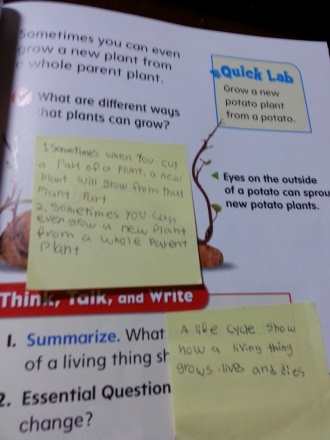 Sometimes you can even
grow a new plant from
a whole parent plant.
What are different ways
that plants can grow?
Quick Lab
Grow a new
potato plant
from a potato.
1 Sometimes when You cut
a Part of a Plant, a new
Plant will grow from that
Plant Part
2. Sometimes YOU can
even grow a new Plant
from a whole Parent
Plant
Eyes on the outside
of a potato can sprou
new potato plants.
Think, Talk, and Write
1. Summarize. What
of a living thing sh
A life cycle show
how a living thing
grows. lives and dies
2. Essential Question
change?